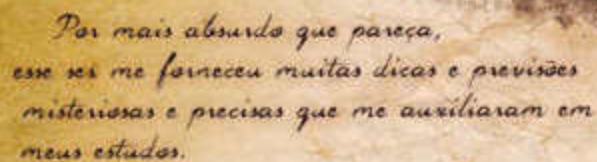 Por mais absurdo que pareça,
esse ser me forneceu muitas dicas e previsões
misteriosas e precisas que me auxiliaram em
meus estudos.